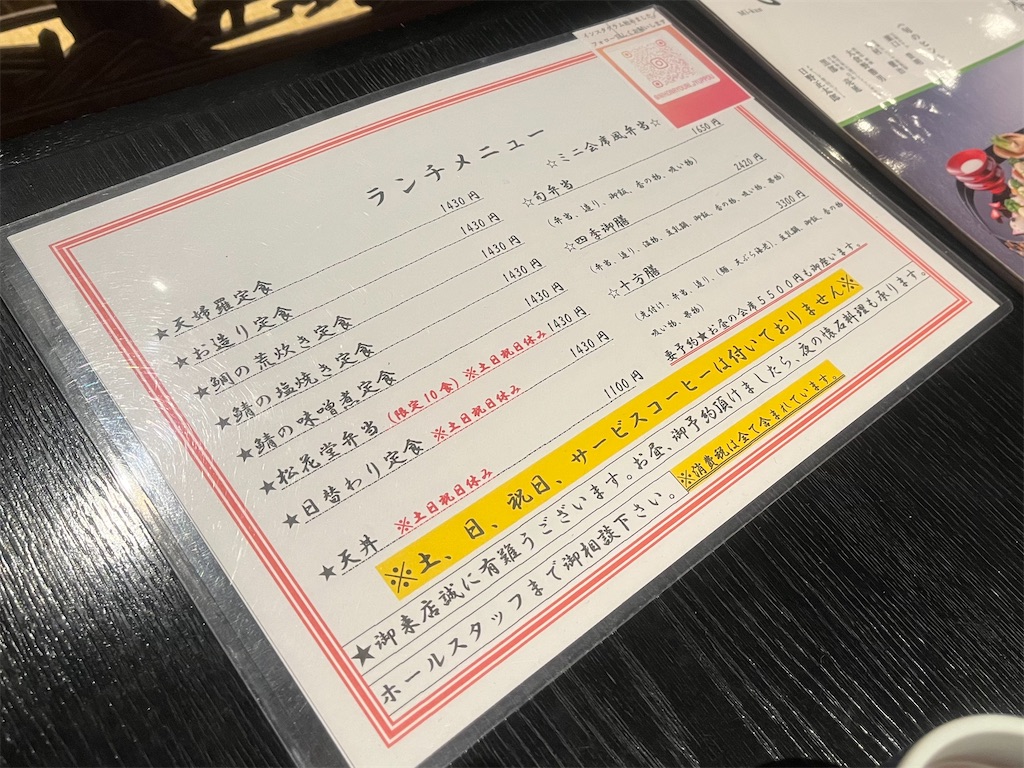 インスタグラム始めました／
フォロー宜しくお願いします
ランチメニュー
★天婦羅定食 1430円
★お造り定食 1430円
★鯛の荒炊き定食 1430円
★鯖の塩焼き定食 1430円
★鯖の味噌煮定食 1430円
★松花堂弁当(限定10食)※土日祝日休み 1430円
★日替わり定食 ※土日祝日休み 1430円
★天丼 ※土日祝日休み 1100円
☆ミニ会席風弁当☆
☆旬弁当 1650円
(弁当、造り、御飯、香の物、吸い物)
☆四季御膳 2420円
(弁当、造り、温物、豆乳鍋、御飯、香の物、吸い物、果物)
☆十方膳 3300円
(先付け、弁当、造り、(鯛、天ぷら海老)、豆乳鍋、御飯、香の物
吸い物、果物)
要予約★お昼の会席5500円も御座います。
※土、日、祝日、サービスコーヒーは付いておりません※
★御来店誠に有難うございます。お昼、御予約頂けましたら、夜の懐石料理も承ります。
ホールスタッフまで御相談下さい。
※消費税は全て含まれています。